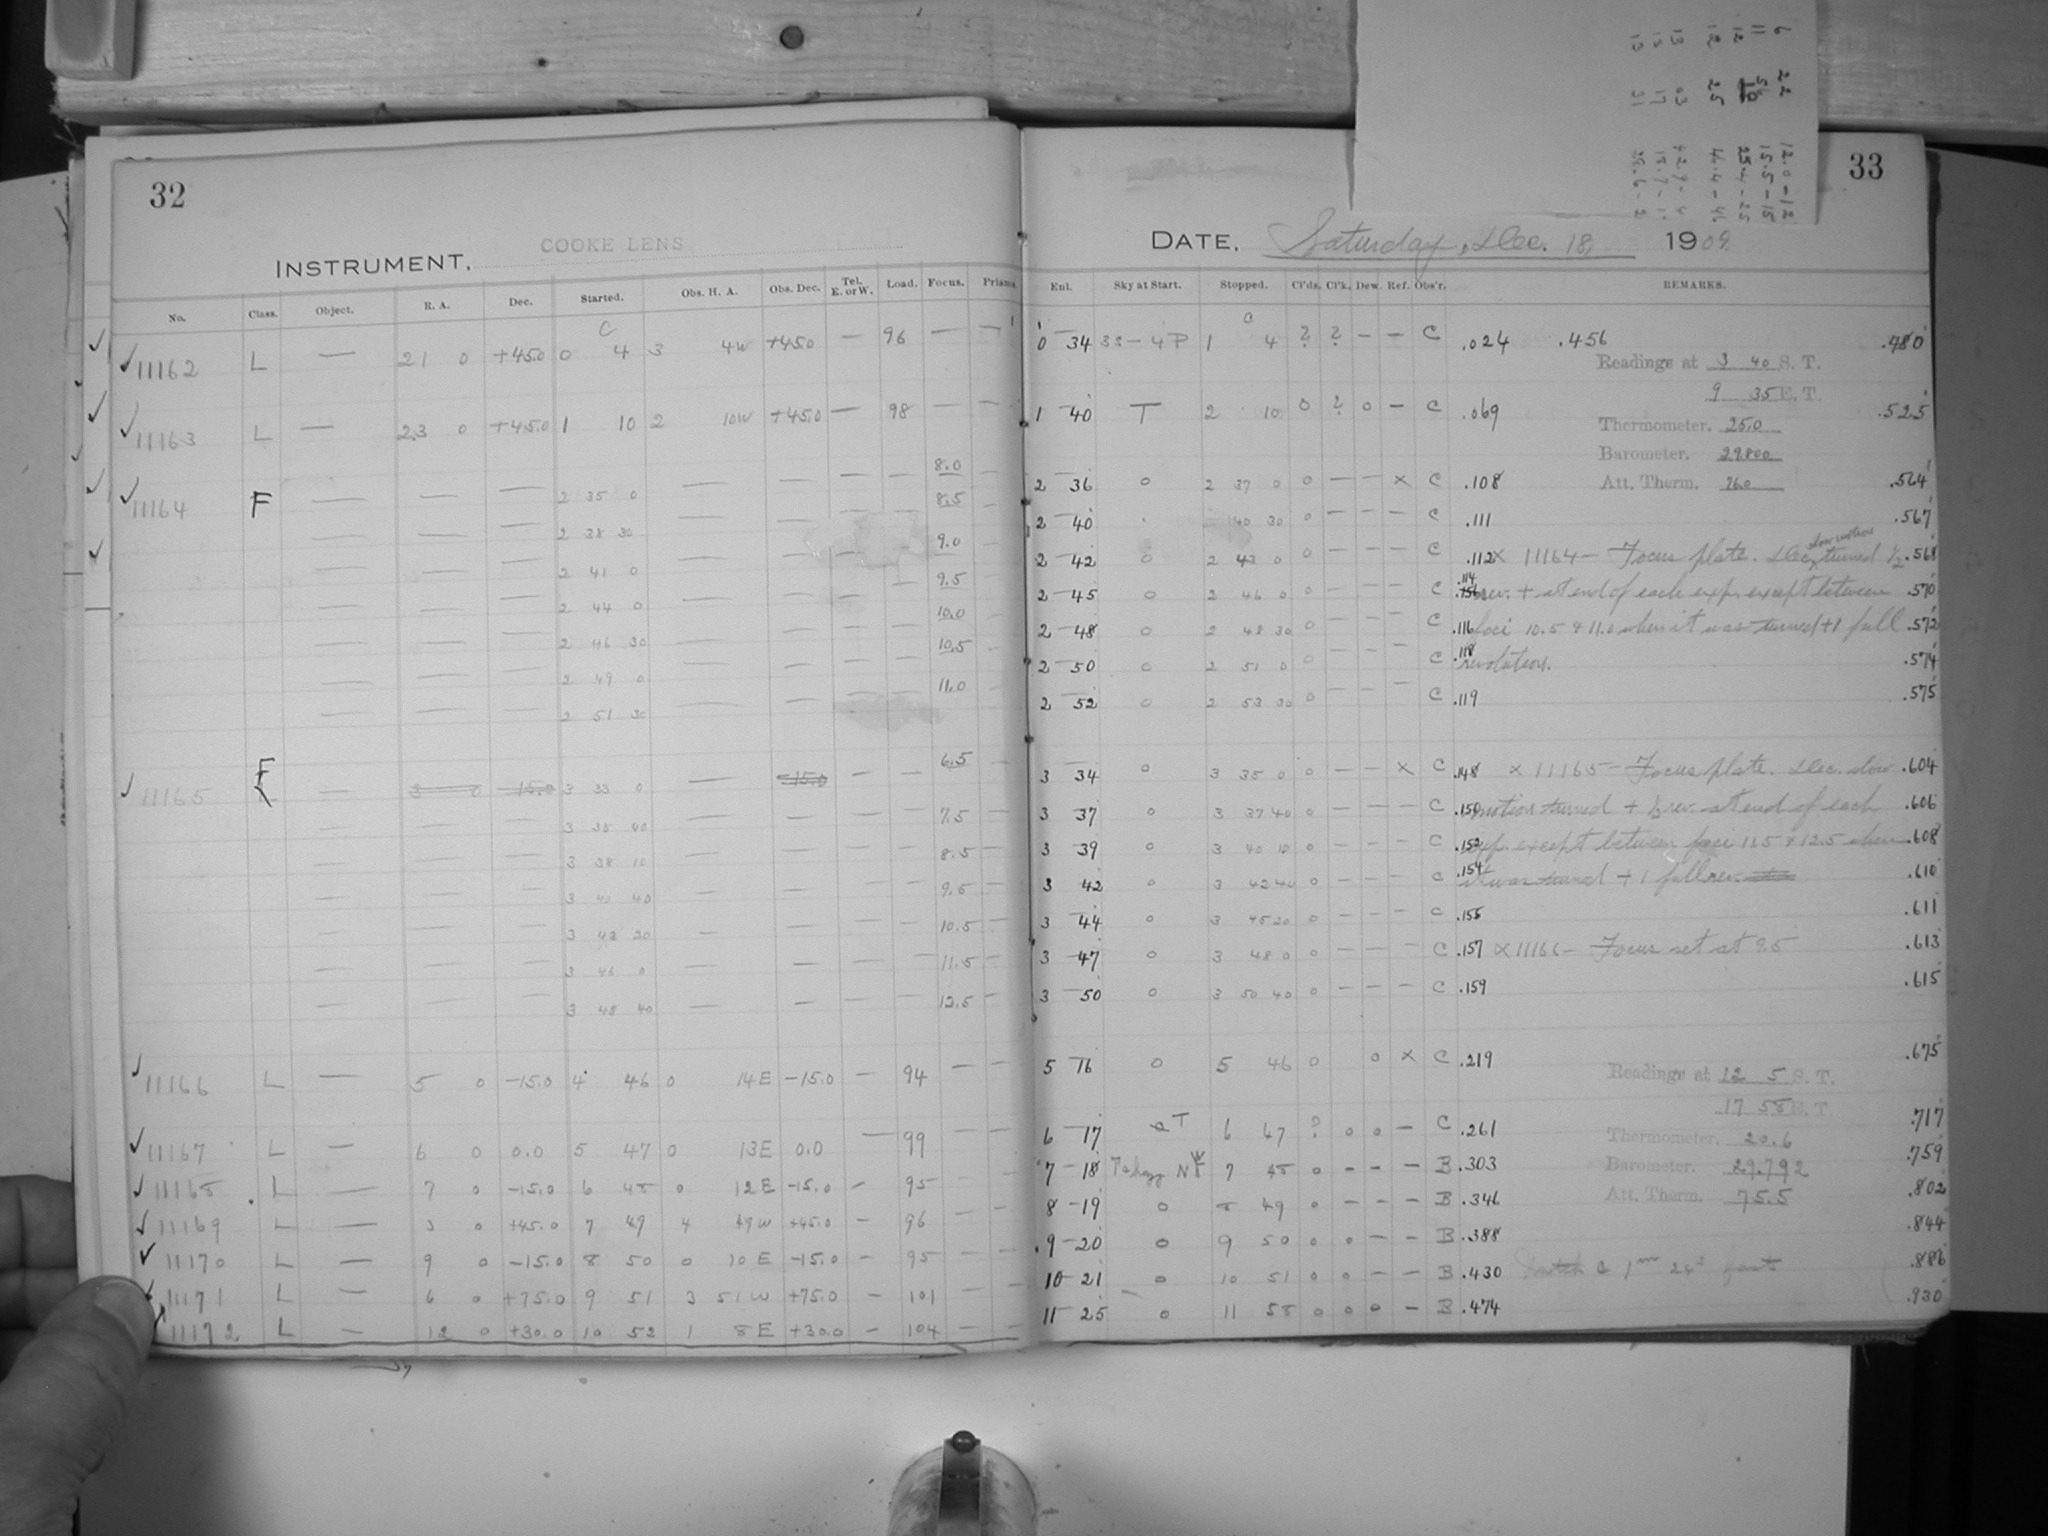 32
INSTRUMENT, COOKE LENS
No. Class. Object. R. A. Dec. Started. Obs. H. A. Obs. Dec. Tel. E. or W. Load. Focus. Prisms
11162 L — 21 0 +45.0 0 4 3 4W +45.0 — 96 — —
11163 L — 23 0 +45.0 1 10 2 10W +45.0 — 98 — —
11164 F — — — 2 35 0 — — — — 8.0 —
— — — 2 38 30 — — — — 8.5 —
— — — 2 41 0 — — — — 9.0 —
— — — 2 44 0 — — — — 9.5 —
— — — 2 46 30 — — — — 10.0 —
— — — 2 49 0 — — — — 10.5 —
— — — 2 51 30 — — — — 11.0 —
11165 F — 3 0 -15.0 3 33 0 — -15.0 — — 6.5
— — — 3 35 40 — — — — 7.5 —
— — — 3 38 10 — — — — 8.5 —
— — — 3 40 40 — — — — 9.5 —
— — — 3 43 20 — — — — 10.5 —
— — — 3 46 0 — — — — 11.5 —
— — — 3 48 40 — — — — 12.5 —
11166 L — 5 0 -15.0 4 46 0 14E -15.0 — 94 — —
11167 L — 6 0 0.0 5 47 0 13E 0.0 — 99 — —
11168 L — 7 0 -15.0 6 48 0 12E -15.0 — 95 — —
11169 L — 3 0 +45.0 7 49 4 49W +45.0 — 96 — —
11170 L — 9 0 -15.0 8 50 0 10E -15.0 — 95 — —
11171 L — 6 0 +75.0 9 51 3 51W +75.0 — 101 — —
11172 L — 12 0 +30.0 10 52 1 8E +30.0 — 104 — —
33
DATE, Saturday, Dec. 18, 1909
Ent. Sky at Start. Stopped. Cl'ds. Cl'k. Dew. Ref. Obs'r. REMARKS.
0 34 33-4P 1 4 ? ? — — C .024 .456 .480
Readings at 3 40 S. T.
9 35 E. T.
1 40 T 2 10 0 ? 0 — C .069 .525
Thermometer. 25.0
Barometer. 29.800
2 36 0 2 37 0 0 — — x C .108 Att. Therm. 76.0 .564
2 40 40 30 0 — — — C .111 .567
2 42 0 2 43 0 0 — — — C .112 x 11164 — Focus plate. Dec. slow motion turned ½ .568
2 45 0 2 46 0 0 — — — C .114 rev. + at end of each exp. except between .570
2 48 0 2 48 30 0 — — — C .116 foci 10.5 & 11.0 when it was turned +1 full .572
2 50 0 2 51 0 0 — — — C .118 revolution. .574
2 52 0 2 53 30 0 — — — C .119 .575
3 34 0 3 35 0 0 — — x C .148 x 11165 — Focus plate. Dec. slow .604
3 37 0 3 37 40 0 — — — C .150 motion turned + ½ rev. at end of each .606
3 39 0 3 40 10 0 — — — C .152 exp. except between foci 11.5 & 12.5 when .608
3 42 0 3 42 40 0 — — — C .154 it was turned + 1 full rev. .610
3 44 0 3 45 20 0 — — — C .155 .611
3 47 0 3 48 0 0 — — — C .157 x 11166 — Focus set at 9.5 .613
3 50 0 3 50 40 0 — — — C .159 .615
5 16 0 5 46 0 0 x C .219 .675
Readings at 12 5 S. T.
17 58 E. T.
6 17 T 6 47 ? 0 0 — C .261 .717
Thermometer. 20.6
7 18 7 48 0 — — — B .303 Barometer. 29.792 .759
8 19 0 8 49 0 — — — B .346 Att. Therm. 75.5 .802
9 20 0 9 50 0 0 — — B .388 .844
10 21 0 10 51 0 0 — — B .430 1m 24s fast .886
11 25 0 11 58 0 0 0 — B .474 .930